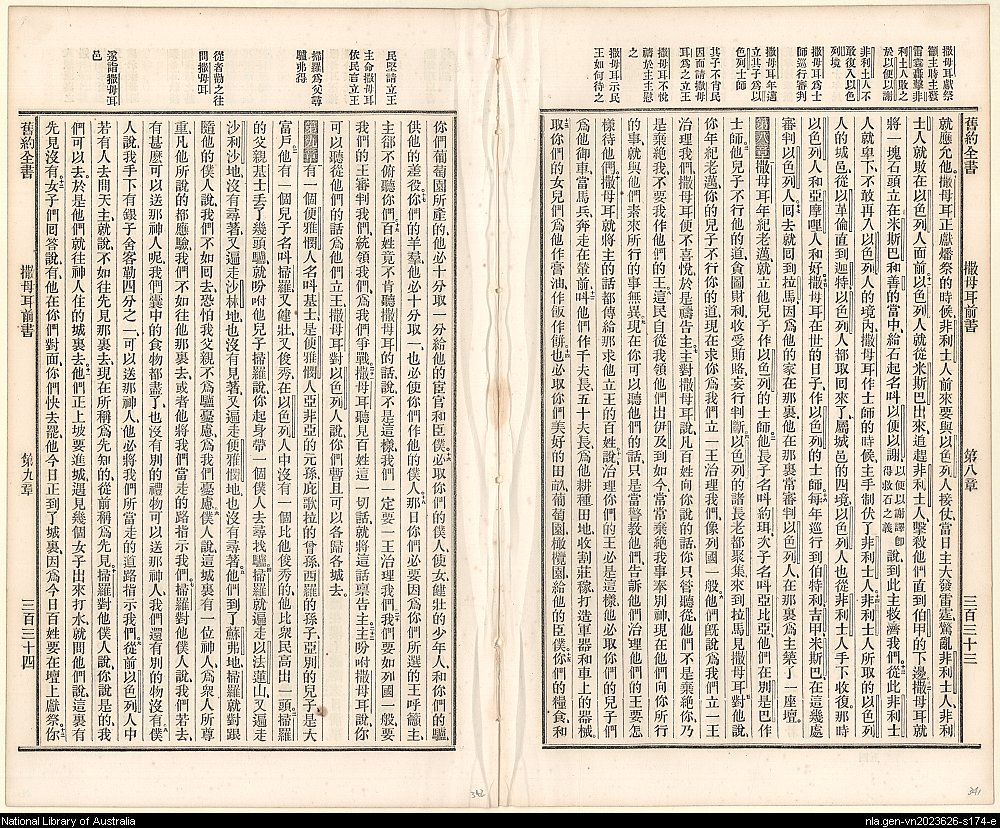 撒母耳獻祭
籲主時主發
雷霆轟擊非
利士人敗之
於以便以謝
非利士人不
敢復入以色
列境
撒母耳爲士
師巡行審判
撒母耳年邁
立其子爲以
色列士師
其子不肖民
因而請撒母
耳爲之立王
撒母耳不悅
禱於主主慰
之
撒母耳示民
王如何待之
舊約全書 撒母耳前書 第八章 三百三十三
就應允他撒母耳正獻燔祭的時候非利士人前來要與以色列人接仗當日主大發雷霆驚亂非利士人非利
士人就敗在以色列人面前以色列人就從米斯巴出來追趕非利士人擊殺他們直到伯甲的下邊撒母耳就
將一塊石頭立在米斯巴和善的當中給石起名叫以便以謝以便以謝譯卽得救石之義說到此主救濟我們從此非利士
人就卑下不敢再入以色列人的境內撒母耳作士師的時候主手制伏了非利士人非利士人所取的以色列
人的城邑從以革倫直到迦特以色列人都取囘來了屬城邑的四境以色列人也從非利士人手下收復那時
以色列人和亞摩哩人和好撒母耳在世的日子作以色列的士師每年巡行到伯特利吉甲米斯巴在這幾處
審判以色列人囘去就囘到拉馬因爲他的家在那裏他在那裏常審判以色列人在那裏爲主築了一座壇
第八章撒母耳年紀老邁就立他兒子作以色列的士師他長子名叫約珥次子名叫亞比亞他們在別是巴作
士師他兒子不行他的道貪圖財利收受賄賂妄行判斷以色列的諸長老都聚集來到拉馬見撒母耳對他說
你年紀老邁你的兒子不行你的道現在求你爲我們立一王治理我們像列國一般他們旣說爲我們立一王
治理我們撒母耳便不喜悅於是禱告主主對撒母耳說凡百姓向你說的話你只管聽從他們不是棄絕你乃
是棄絕我不要我作他們的王這民自從我領他們出伊及到如今常常棄絕我事奉別神現在他們向你所行
的事就與他們素來所行的事無異現在你可以聽他們的話只是當警教他們告訴他們治理他們的王要怎
樣待他們撒母耳就將主的話都傳給那求他立王的百姓說治理你們的王必是這樣他必取你們的兒子們
爲他御車當馬兵奔走在輦前叫他們作千夫長五十夫長爲他耕種田地收割莊稼打造軍器和車上的器械
取你們的女兒們爲他作膏油作飯作餅也必取你們美好的田畝葡萄園橄欖園給他的臣僕你們的糧食和
民堅請立王
主命撒母耳
依民言立王
掃羅爲父尋
驢弗得
從者勸之往
問撒母耳
遂詣撒母耳
邑
你們葡萄園所產的他必十分取一分給他的宦官和臣僕必取你們的僕人使女健壯的少年人和你們的驢
供他的差役你們的羊羣他必十分取一也必使你們作他的僕人那日你們必要因爲你們所選的王呼籲主
主卻不俯聽你們百姓竟不肯聽撒母耳的話說不是這樣我們一定要一王治理我們我們要如列國一般
我們的王審判我們統領我們爲我們爭戰撒母耳聽見百姓這一切話就將這話稟告主主吩咐撒母耳說你
可以聽從他們的話爲他們立王撒母耳對以色列人說你們暫且可以各歸各城去
第九章有一個便雅憫人名叫基士是便雅憫人亞非亞的元孫庇歌拉的曾孫西羅的孫子亞別的兒子是大
富戶他有一個兒子名叫掃羅又健壯又俊秀在以色列人中沒有一個比他俊秀的他比衆民高出一頭掃羅
的父親基士丟了幾頭驢就吩咐他兒子掃羅說你起身帶一個僕人去尋找驢掃羅就遍走以法蓮山又遍走
沙利沙地沒有尋著又遍走沙林地也沒有見著又遍走便雅憫地也沒有尋著他們到了蘇弗地掃羅就對跟
隨他的僕人說我們不如囘去恐怕我父親不爲驢憂慮爲我們憂慮僕人說這城裏有一位神人爲衆人所尊
重凡他所說的都應驗我們不如往他那裏去或者他將我們當走的路指示我們掃羅對他僕人說我們若去
有甚麽可以送那神人呢我們囊中的食物都盡了也沒有別的禮物可以送那神人我們還有別的物沒有僕
人說我手下有銀子舍客勒四分之一可以送那神人他必將我們所當走的道路指示我們從前以色列人中
若有人去問天主就說不如往先見那裏去現在所稱爲先知的從前稱爲先見掃羅對他僕人說你說是的我
們可以去於是他們就往神人住的城裏去他們正上坡要進城遇見幾個女子出來打水就問他們說這裏有
先見沒有女子們囘答說有他在你們對面你們快去罷他今日正到了城裏因爲今日百姓要在壇上獻祭你
舊約全書 撒母耳前書 第九章 三百三十四
342
341
National Library of Australia
nla.gen-vn2023626-s174-e